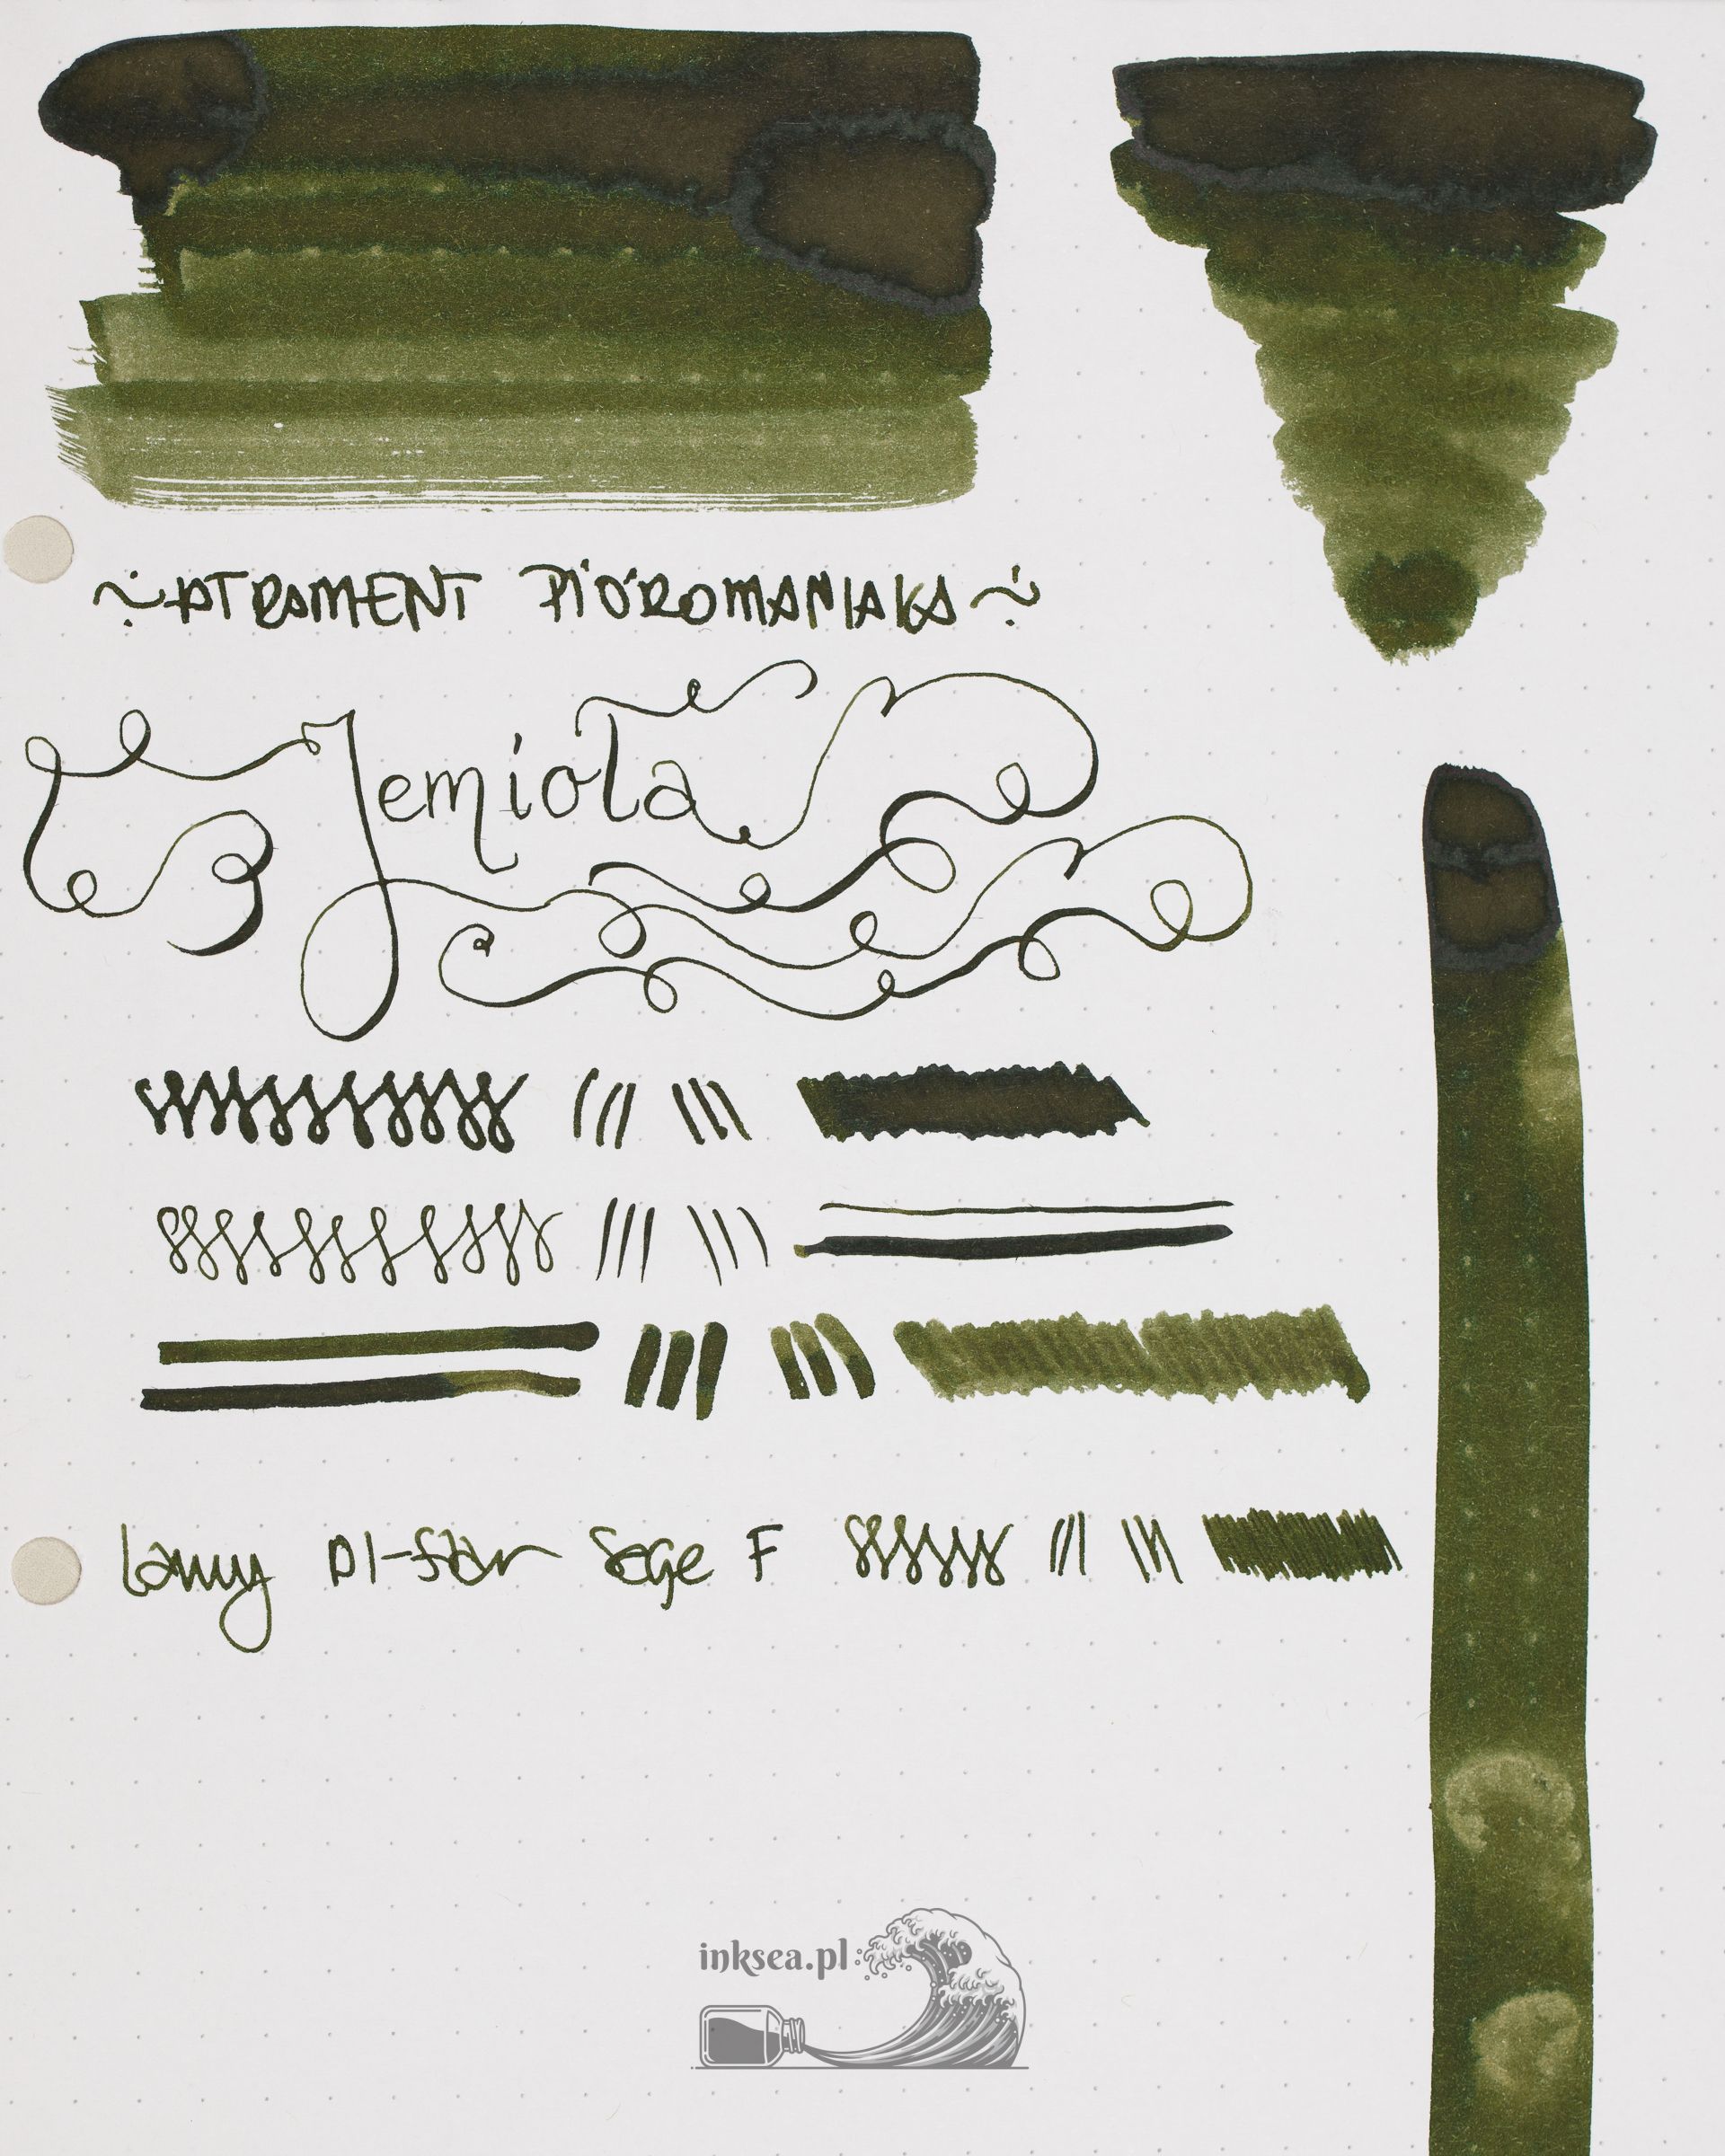 ~ATRAMENT PIÓROMANIAKA~
Jemioła
Lamy Al-star Sage F
inksea.pl